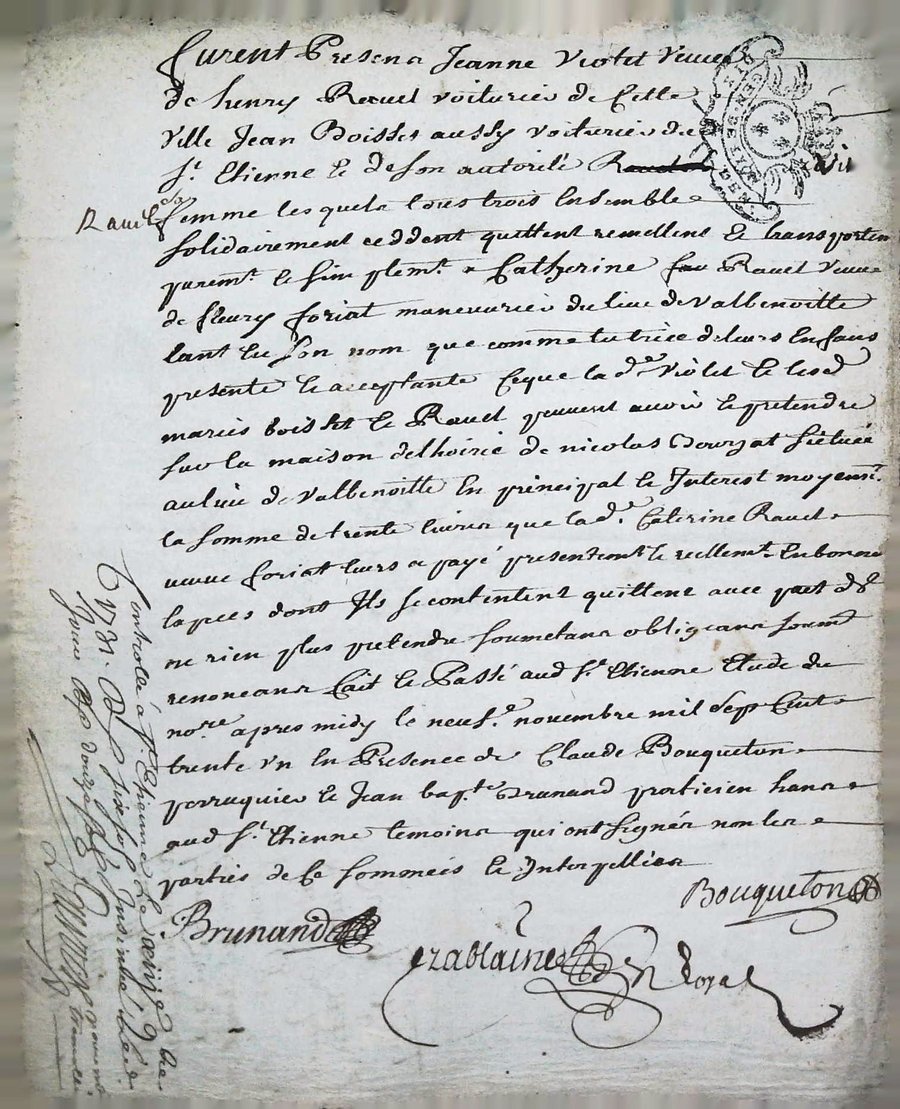 furent Presens Jeanne Violet veuve
de henry Rauel voiturier de Cette
Ville Jean Boisset aussy voiturier de
St. Etienne et de son autorité
Rauel sa
femme lesquels tous trois Ensemble
solidairement ceddent quittent remettent Et transportent
puremt. et simplemt. a Catherine Rauel veuve
de fleury foriat maneuvrier du lieu de Valbenoitte
tant En son nom que comme tutrice de leurs Enfans
presente et acceptante Ceque la de. Violet et lesd
mariés boisset et Rauel peuvent avoir et pretendre
sur la maison delhoirie de nicolas Dourzat sictuée
au lieu de Valbenoitte En principal et Interest moyent.
la somme de trente livres que lad. Caterine Rauel
veuve foriat leurs a payé presentemt. et réellemt. En bonnes
Espèces dont Ils se contentent quittent avec pact de
ne rien plus pretendre soumetans obligeans soumt.
renoncans fait et Passé aud St. Etienne Etude du
nore. apres midy le neufe. novembre mil sept Cent
trente un En Presence de Claude Bouqueton
perruquier et Jean bapte. Brunand praticien hans
aud St. Etienne temoins qui ont signés non les
parties de Ce sommées et Interpellées
Bouqueton
Brunand
Controllé a St. Etienne le
1731.